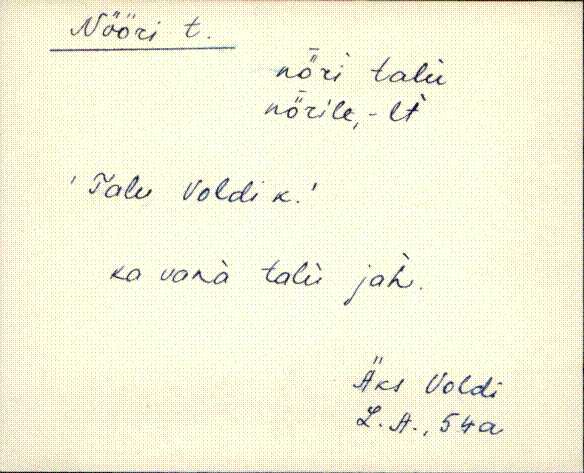 Nööri t.
nȫri talù
nȫrile, -lt
'Talu Voldi k.'
ka vanà talù jah.
Äks Voldi
L.A., 54a